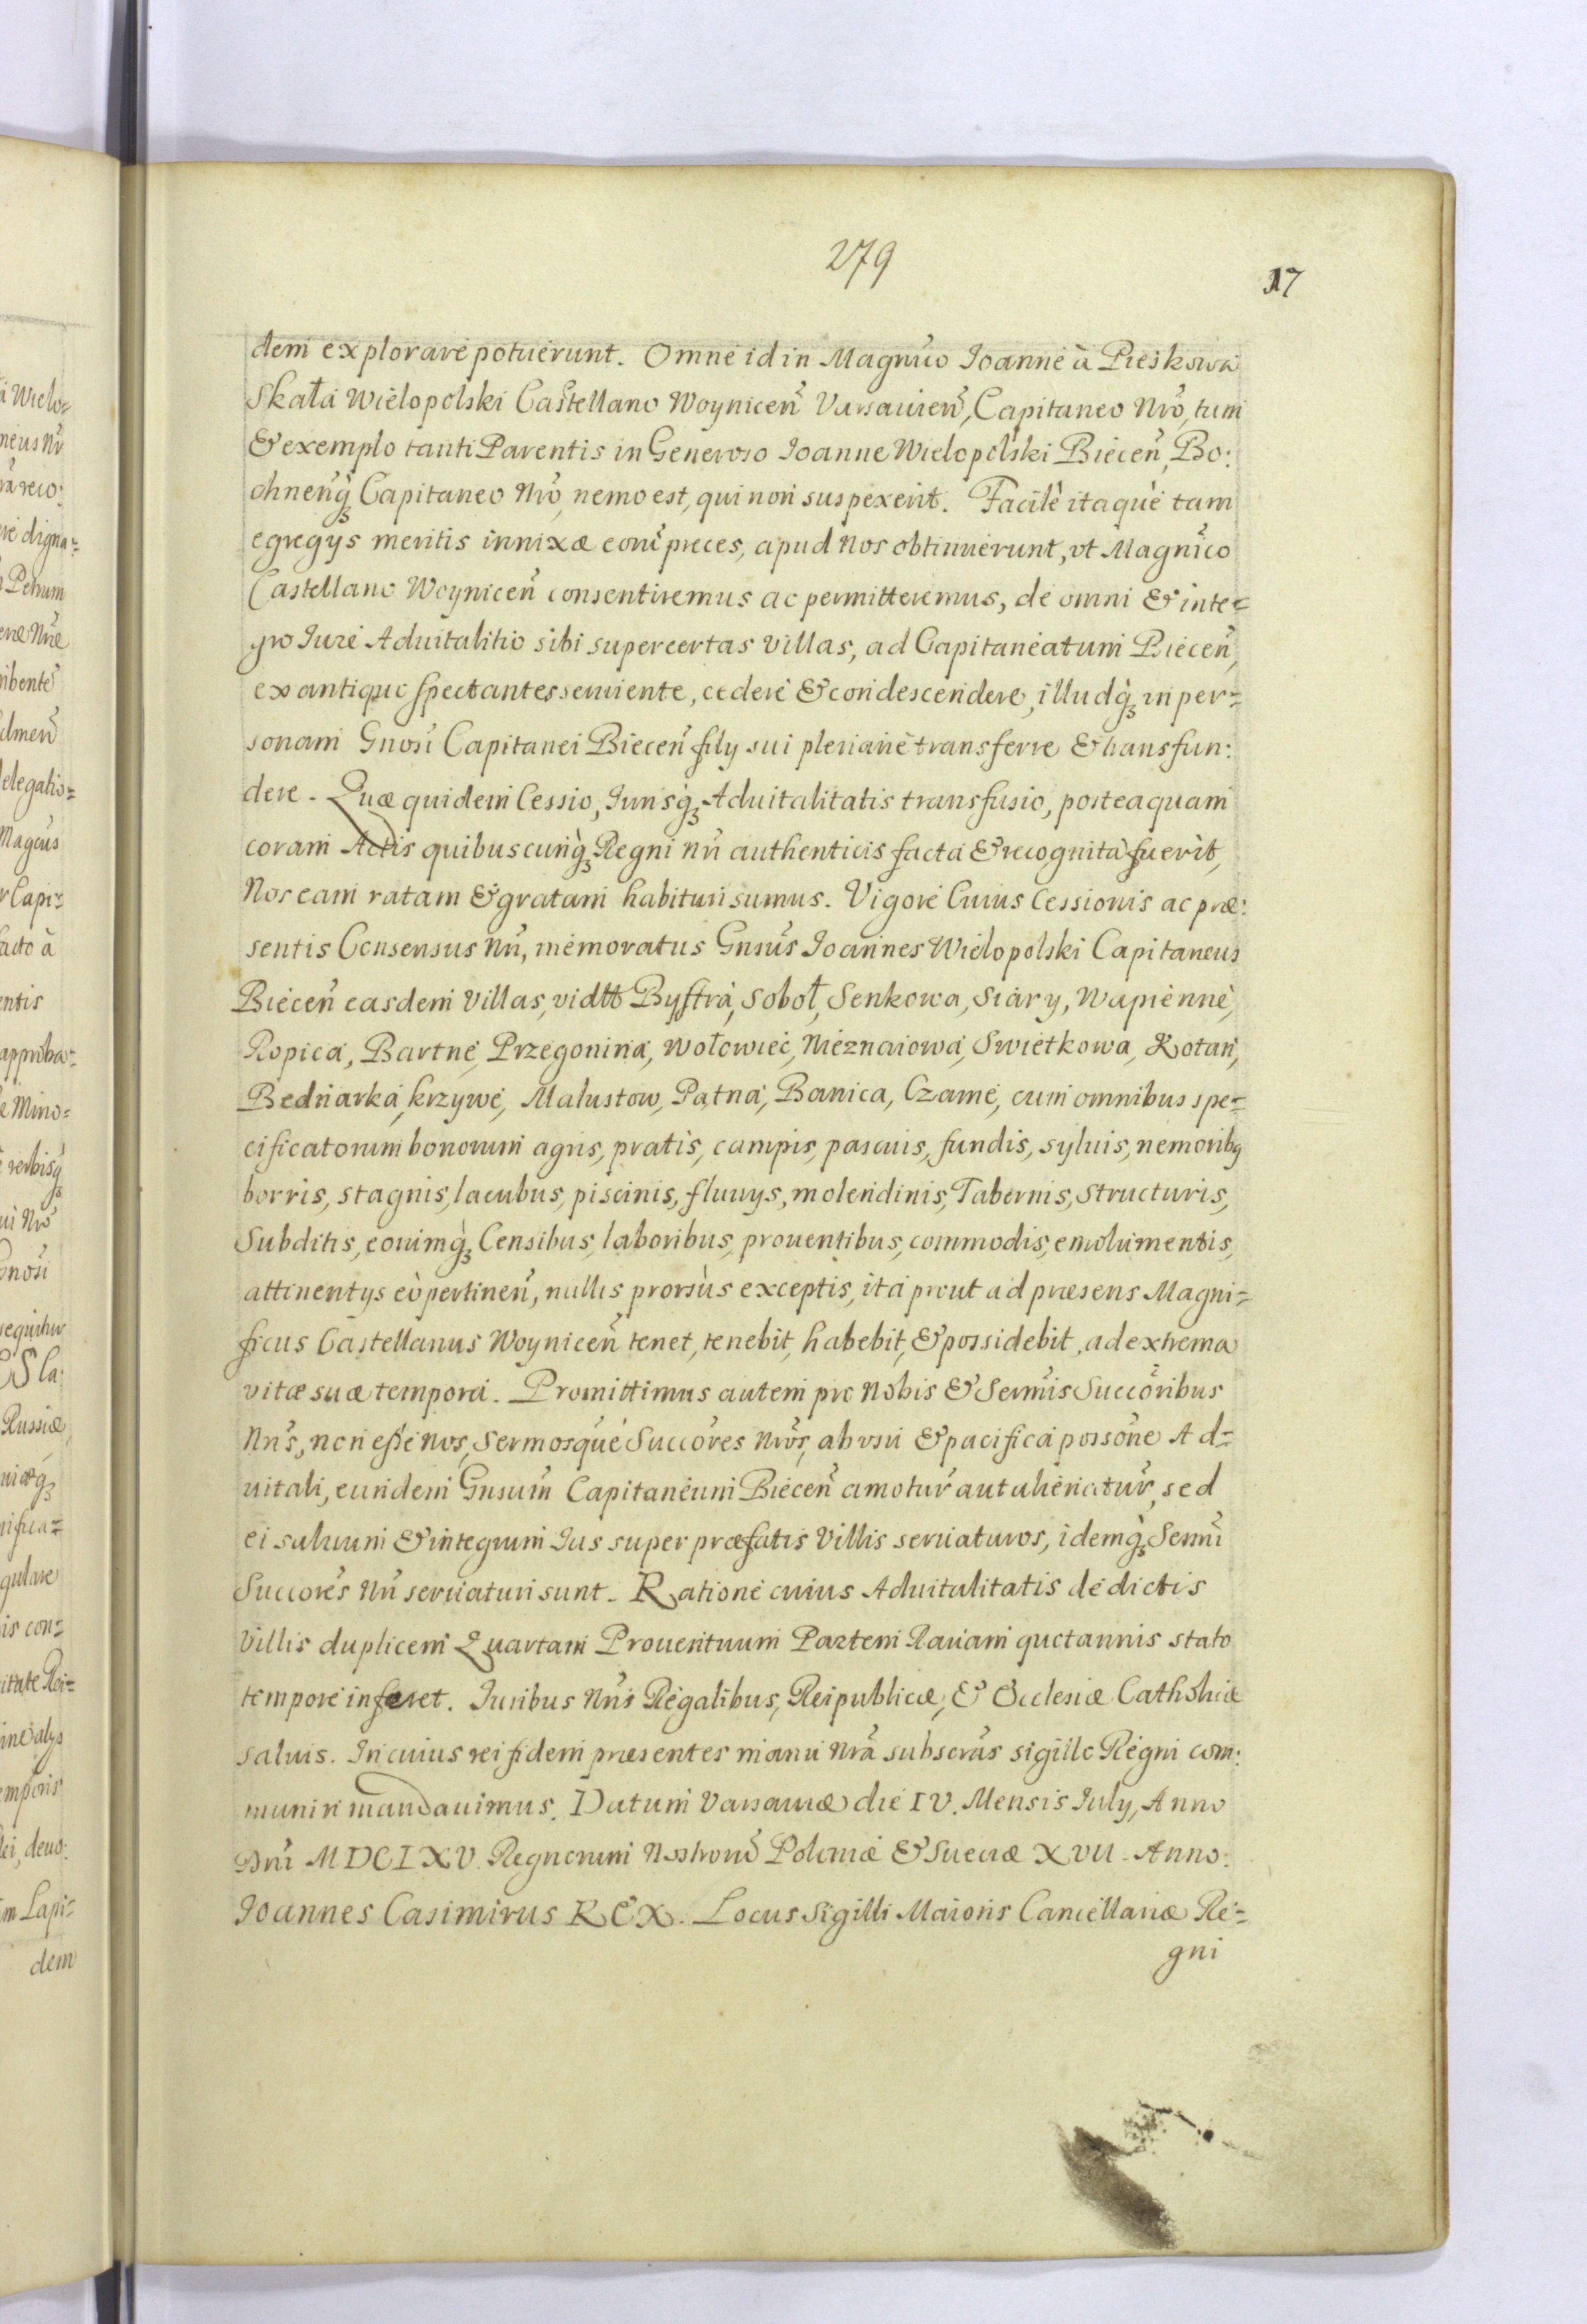 279
17
dem explorare potuerunt. Omne id in Magnĩco Ioanne à Pieskowa
Skała Wielopolski Castellano Woynicen̄ Varsavien̄, Capitaneo Nr̃o, tum
& exemplo tanti Parentis in Generoso Ioanne Wielopolski Biecen̄, Bo:
chnen̄q̨ Capitaneo Nr̃o, nemo est, qui non suspexerit. Facilè itaquè tam
egregys meritis innixæ eorũ preces, apud Nos obtinuerunt, vt Magnĩco
Castellano Woynicen̄ consentiremus ac permitteremus, de omni & inte=
gro Iure Aduitalitio sibi super certas Villas, ad Capitaneatum Biecen̄,
ex antiquo spectantes seruiente, cedere & condescendere, illudq̨ in per=
sonam Gnosi Capitanei Biecen̄ fily sui plenariè transferre & transfun:
dere. Quæ quidem Cessio, Iurisq̨ Aduitalitatis transfusio, posteaquam
coram Actis quibuscunq̨ Regni nr̃i authenticis facta & recognita fuerit,
Nos eam ratam & gratam habituri sumus. Vigore Cuius Cessionis ac præ:
sentis Consensus nr̃i, memoratus Gnsus Ioannes Wielopolski Capitaneus
Biecen̄ easdem Villas, vidtt Bystra, Soboł, Senkowa, Siary, Wapienne,
Ropica, Bartne, Przegonina, Wołowiec, Nieznaiowa, Swietkowa, Kotan,
Bednarka, krzywe, Malustow, Pątna, Banica, Czarne, cum omnibus spe=
cificatorum bonorum agris, pratis, campis, pascuis, fundis, syluis, nemoribq
borris, stagnis, lacubus, piscinis, fluuys, molendinis, Tabernis, structuris,
Subditis, eorumq̨ Censibus, laboribus, prouentibus, commodis, emolumentis,
attinentys eò pertinen̄, nullis prorsùs exceptis, ita prout ad præsens Magni=
ficus Castellanus Woynicen̄ tenet, tenebit, habebit, & possidebit, ad extrema
vitæ suæ tempora. Promittimus autem pro Nobis & Sermis Succoribus
Nris, non esse nos, Sermosque Succores Nros, ab vsu & pacifica possone Ad=
uitali, eundem Gnsum Capitaneum Biecen̄ amotur̄ aut alienatur̄, sed
ei saluum & integrum Ius super præfatis Villis seruaturos, idemq̨ Sermi
Succores Nr̃i seruaturi sunt. Ratione cuius Aduitalitatis de dictis
Villis duplicem Quartam Prouentuum Partem Rauam quotannis stato
tempore inferet. Iuribus Nris Regalibus, Reipublicæ, & Ecclesiæ Catholicæ
saluis. In cuius rei fidem præsentes manu Nrã subscras sigillo Regni com:
muniri mandauimus. Datum Varsauiæ die IV. Mensis July, Anno
Dni MDCLXV Regnorum Nostrorũ Poloniæ & Sueciæ XVII. Anno.
Ioannes Casimirus REX. Locus Sigilli Maioris Cancellariæ Re=
gni